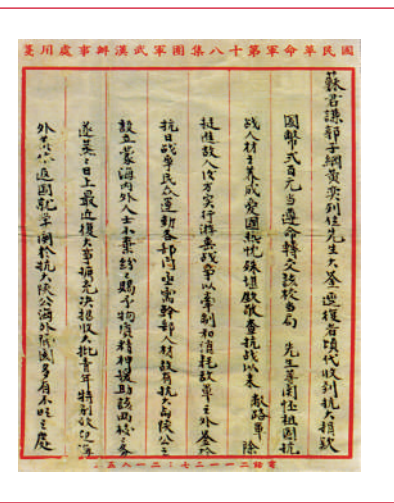 國民革命軍第十八集團軍武漢辦事處用箋
蘇君謙郭子綱黃奕到任先生大鑒逕復者頃代收到抗大捐款
國幣弍百元当遵命轉交該校当局 先生等関怀祖国抗
战人材之养成爱國熱忱殊堪欽敬查抗战以来 敝路軍除
挺進敌人后方实行游击战争以牽制和消耗敌軍之外並於
抗日战争民众運動各部门亟需幹部人材故有抗大與陕公之
設立蒙海内外人士不棄紛紛賜予物質精神援助該両校之务
遂蒸蒸日上最近復大事擴充决招收大批青年特别欢迎海
外返國就学関於抗大陕公海外祇國多有不明之處
電話二一一二七：二一八五